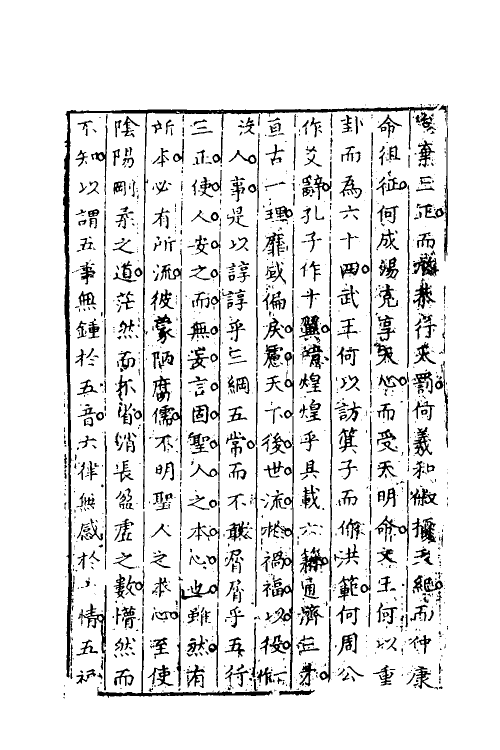 棄三正而龔恭行天罰何羲和俶擾天紀而仲康
命徂征何成湯克享天心而受天明命文王何以重
卦而為六十四武王何以訪箕子而作洪範何周公
作爻辭孔子作十翼噫煌煌乎具載六籍通濟三才
亘古一理靡或偏戾慮天下後世流於禍福以役
沒人事是以諄諄乎三綱五常而不敢屑屑乎五行
三正使人安之而無妄言固聖人之本心也雖然有
所本必有所流彼蒙陋腐儒不明聖人之本心至使
陰陽剛柔之道茫然而不省消長盈虛之數懵然而
不知以謂五事無鍾於五音六律無感於情五